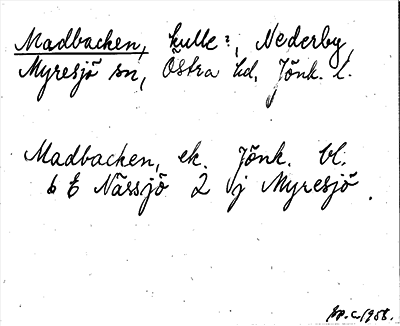 Madbacken, kulle?, Nederby,
Myresjö sn, Östra hd, Jönk. l.
Madbacken, ek. Jönk. bl.
6 E Nässjö 2 j Myresjö.
1958.